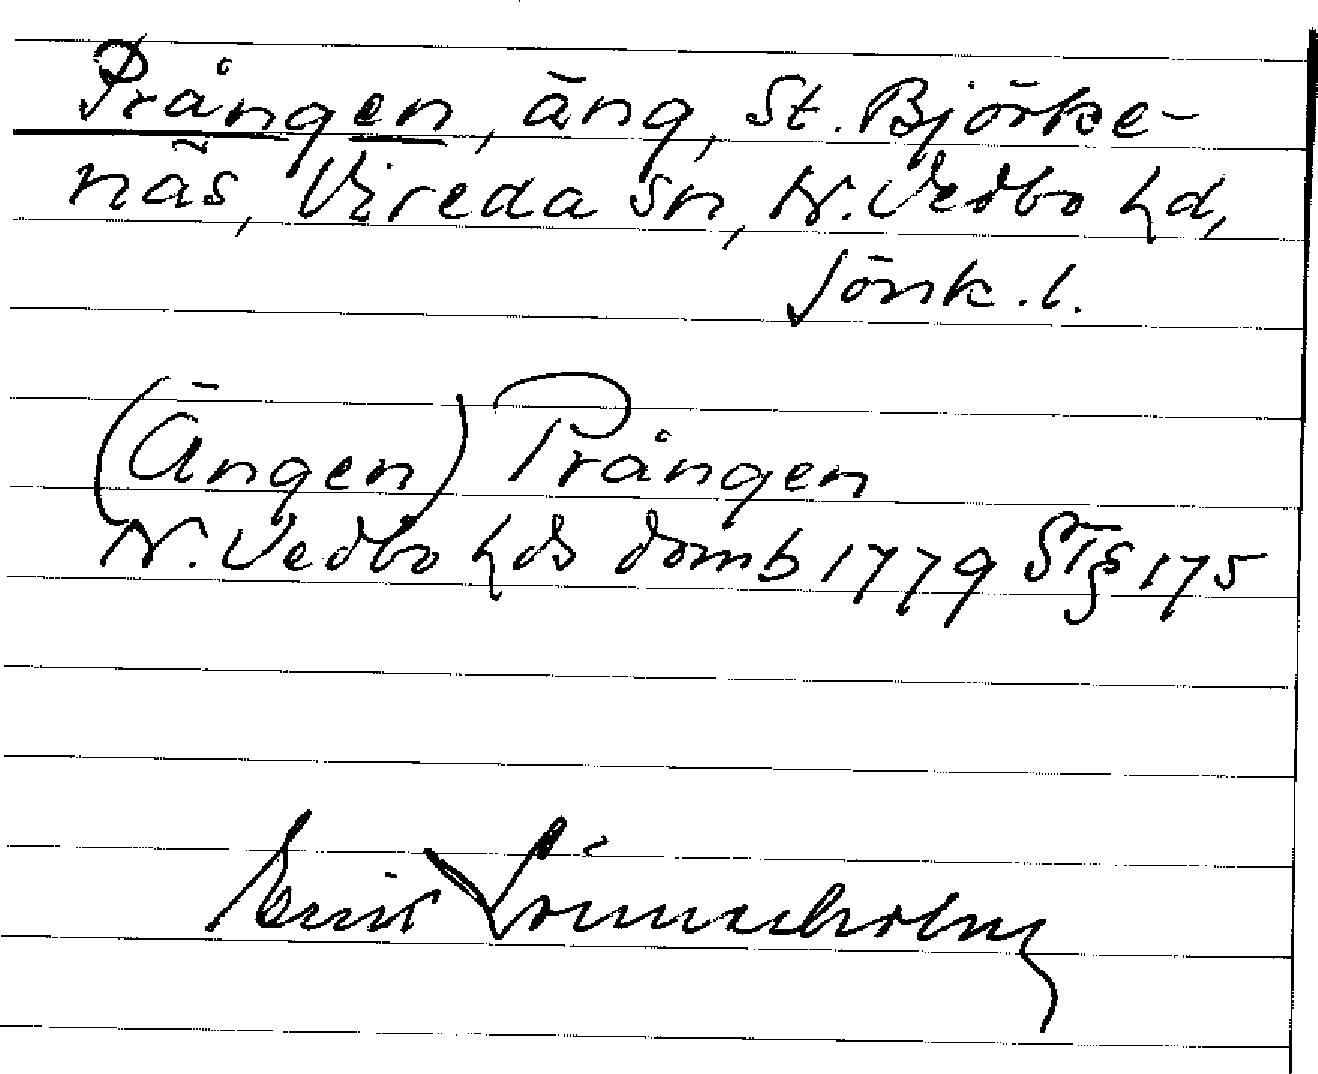 Prången, äng, St. Björke-
näs, Vireda sn, N. Vedbo hd,
Jönk. l.
(Ängen) Prången
N. Vedbo hds domb 1779 § 175
Erik